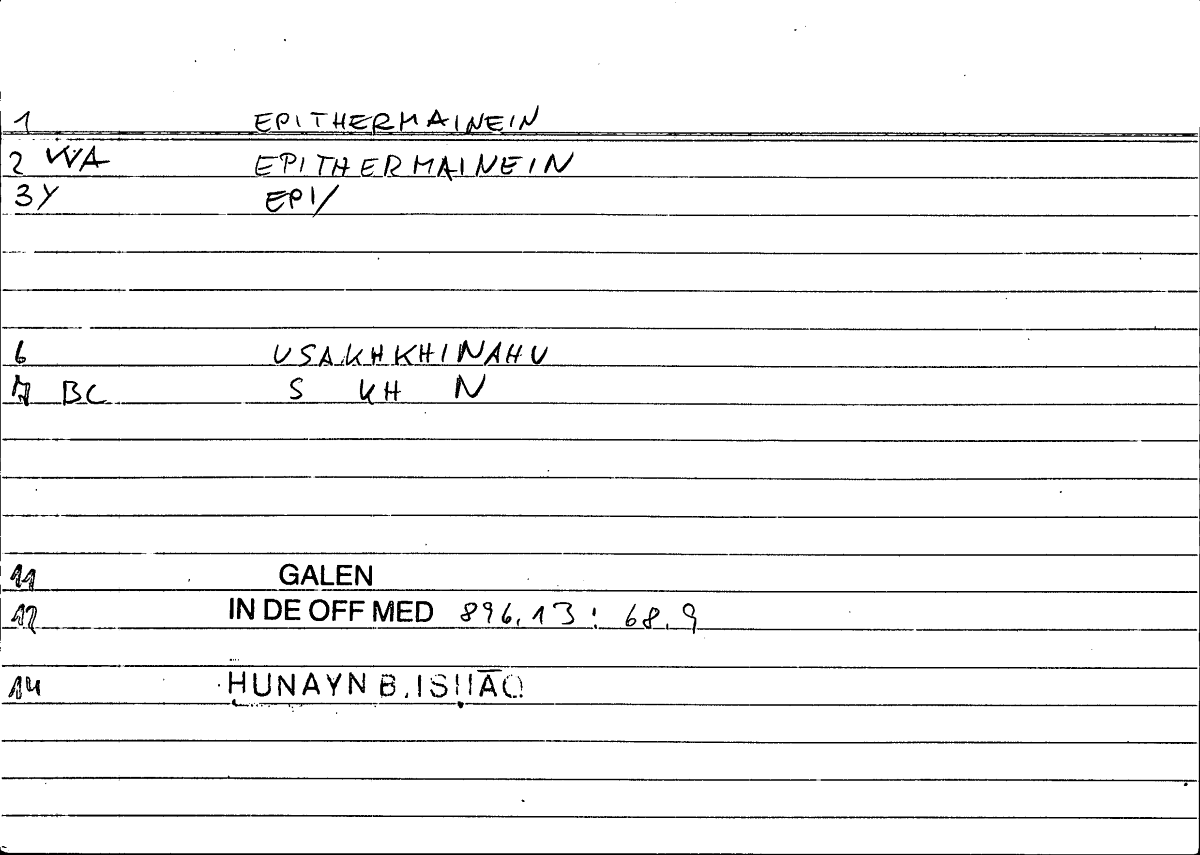 1 EPITHERMAINEIN
2 VVA EPITHERMAINEIN
3 Y EPI/
6 USAKHKHINAHU
7 BC S KH N
11 GALEN
12 IN DE OFF MED 896,13: 68,9
14 ḤUNAYN B. ISḤĀQ